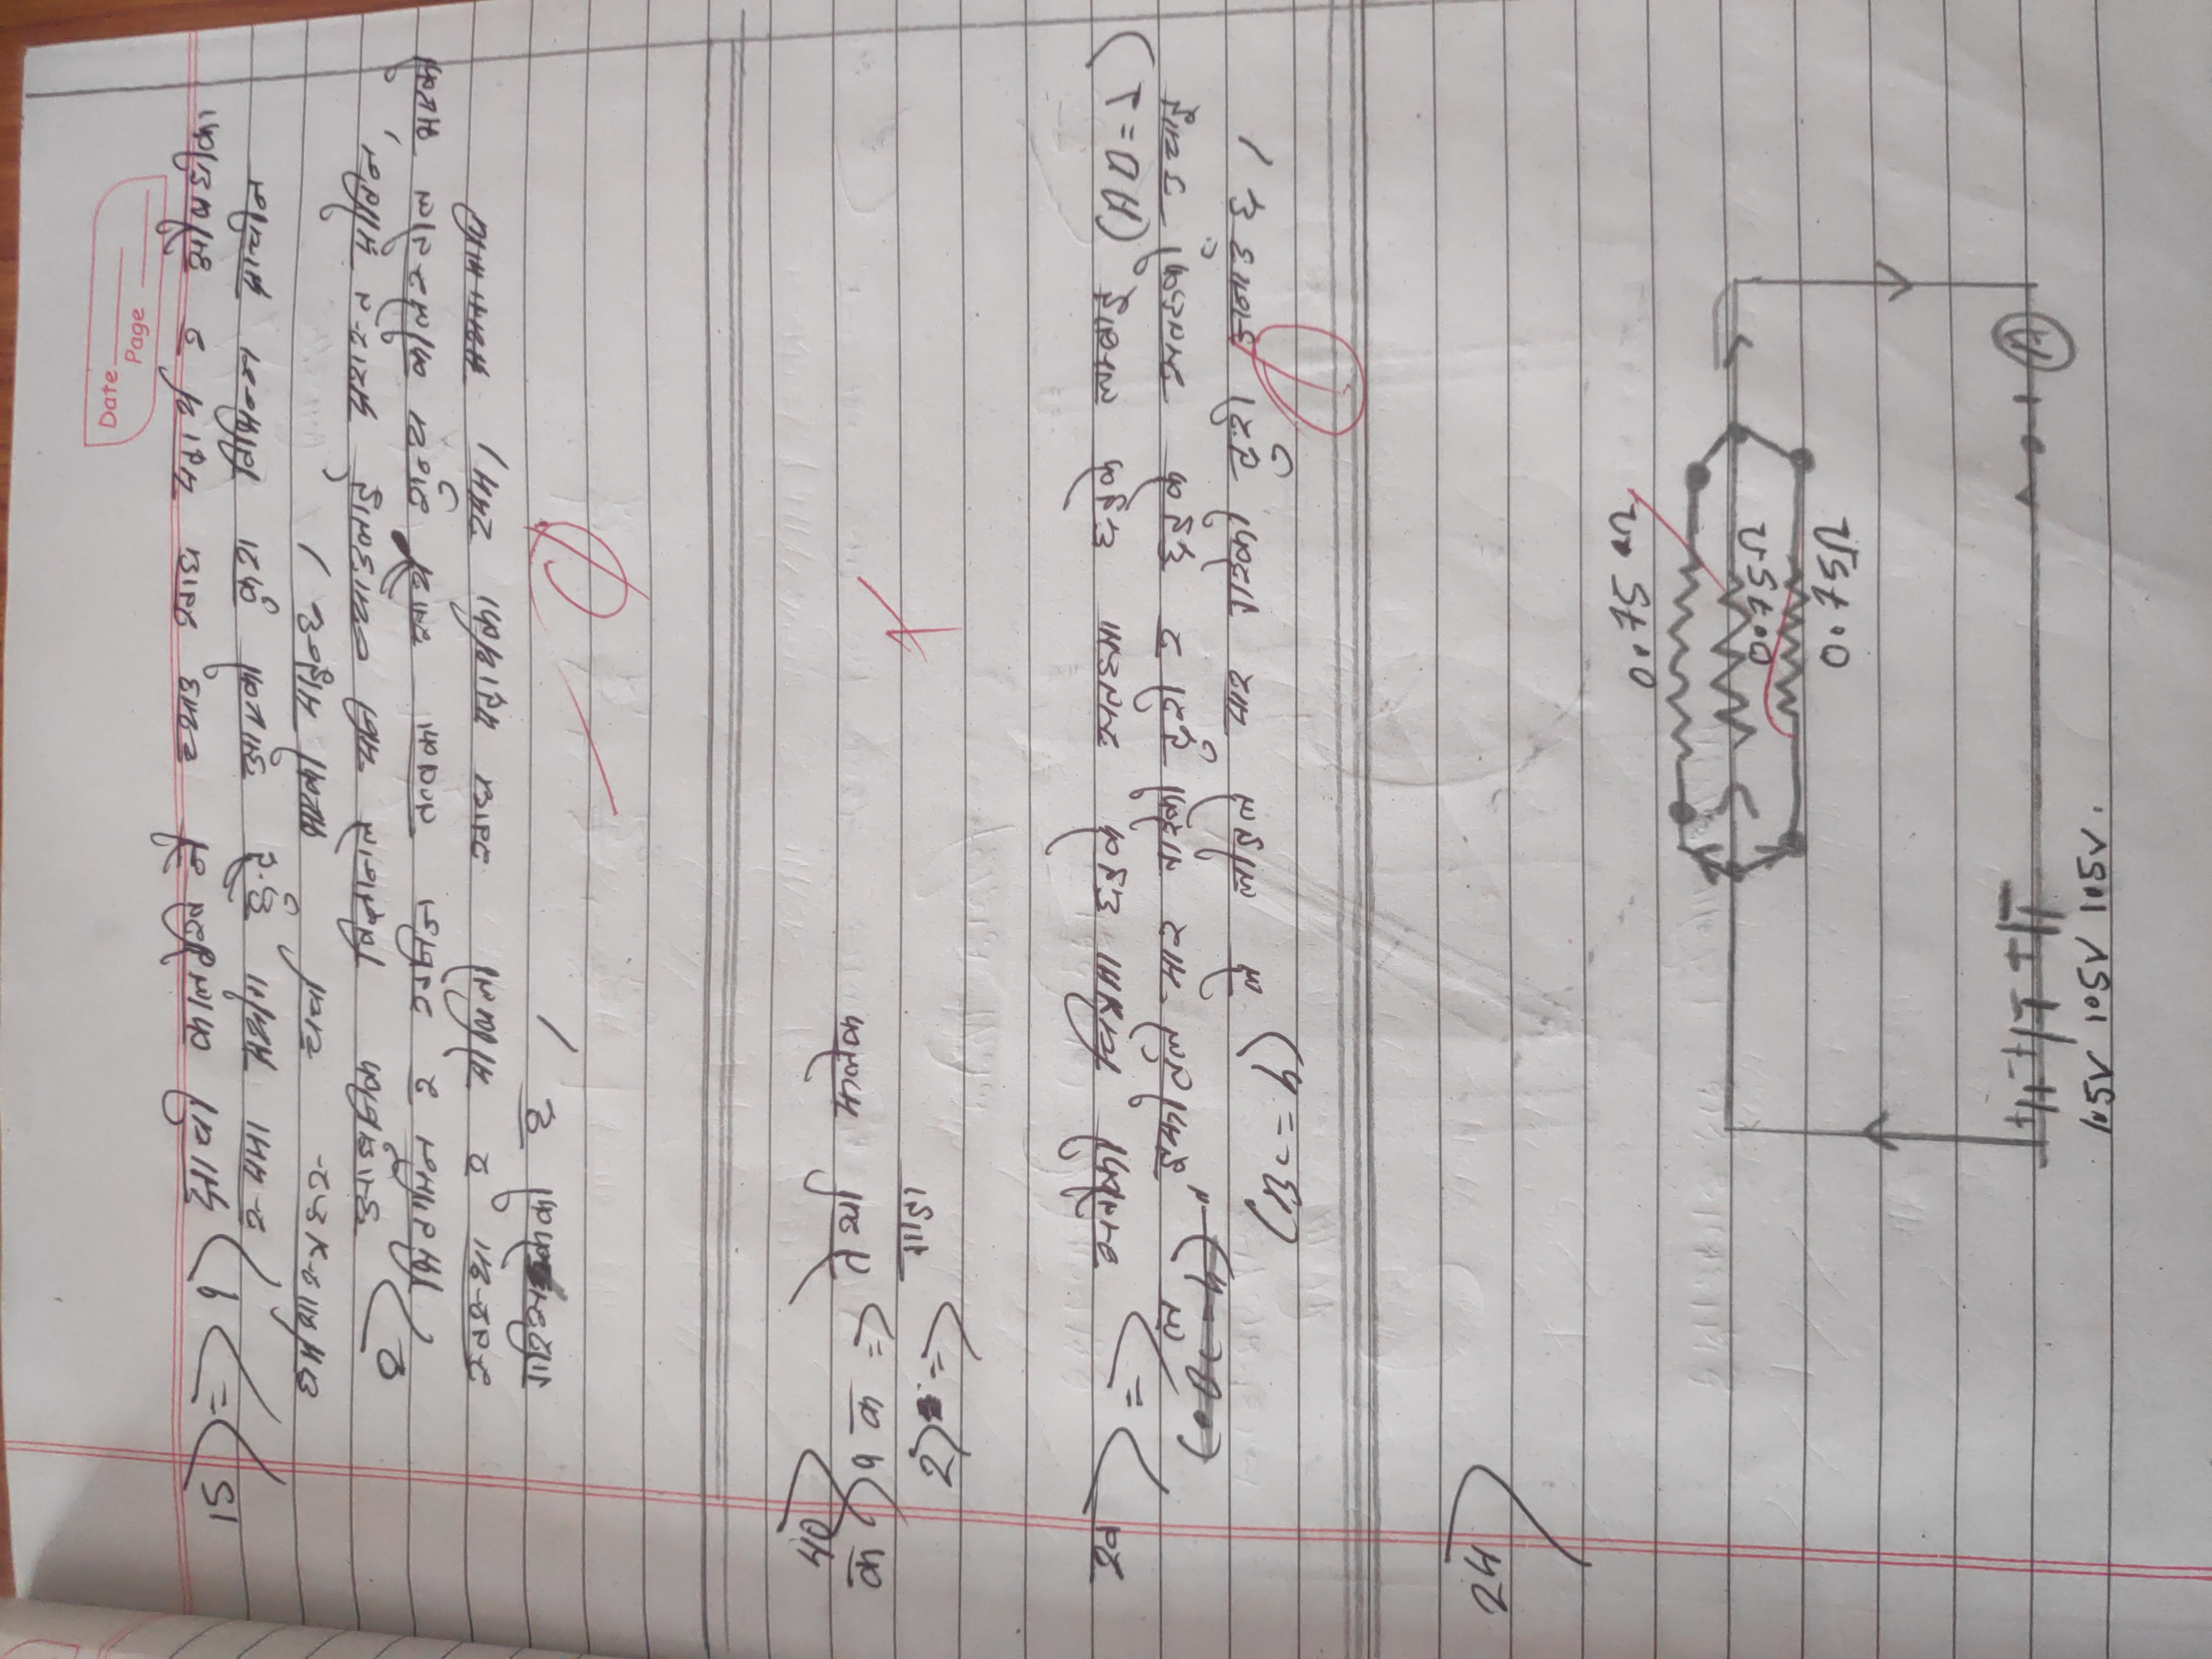 Date
Page
15) => १) प्राची कालदेखि नै च्याउ खाद्य पदार्थ र औषधीका
रुपमा प्रयोग हुँदै आएको कुरा विभिन्न प्राचीन
धर्मशास्त्रहरु चर्चा भएको पाइन्छ ।
२) आधुनिक विज्ञानले पनि च्याउलाई प्रशस्त प्रोटिन,
भिटामिन र खनिज तत्वका साथै शुन्य कोलेस्टोल भएको
स्वस्था र पोषिलो खाद्य पदार्थका रुपमा
गरिसकेको छ ।
क) १ क => तेर्सो
2) => गाडा
ख) => सँगैको चित्रमा छड्के सतहमा छड्के लम्बाइ (AD = l)
ले इफोर्टले पार गरेको दुरी र छड्के सतहको उचाइ
(BC = h) ले लोडले पार गरेको दुरी जनाउँछ ।
24)
0.75 Ω
0.75Ω
0.75Ω
+ - + - + -
A
1.5V 1.5V 1.5V.